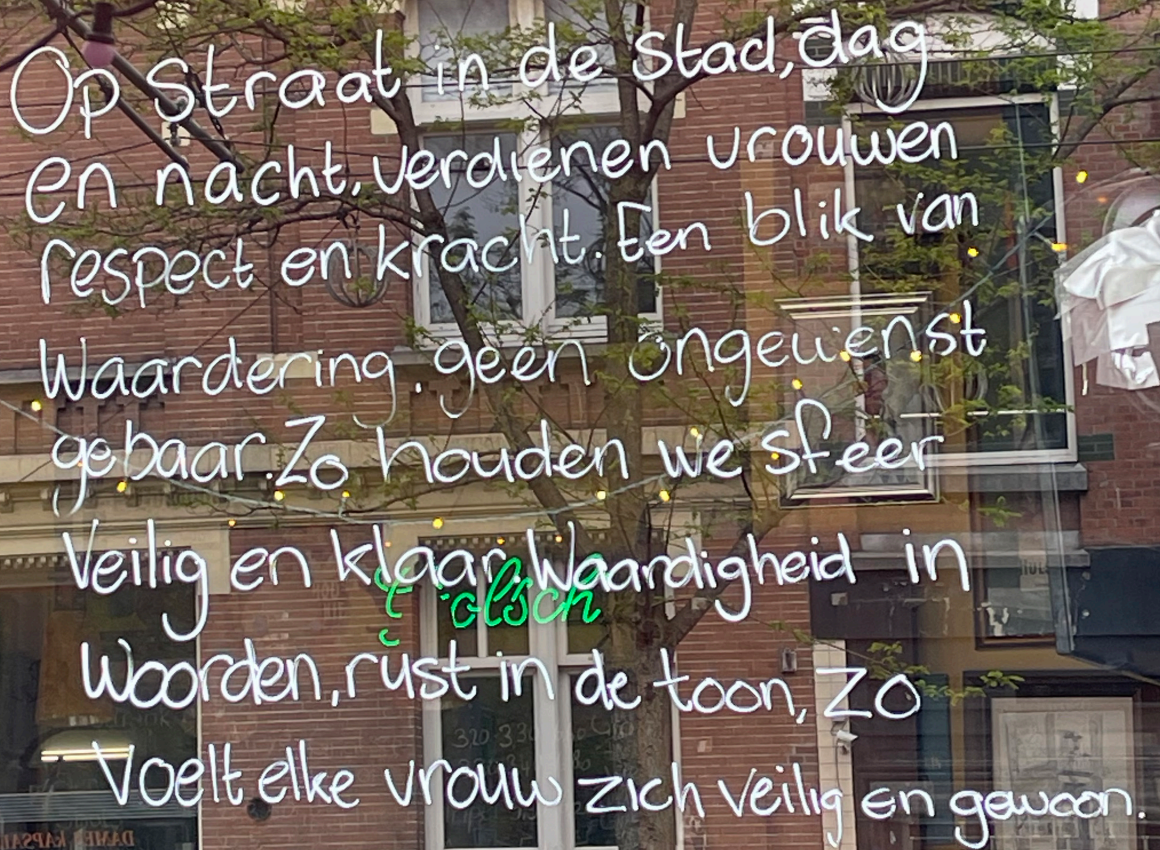 Op Straat in de stad, dag
en nacht, verdienen vrouwen
respect en kracht. Een blik van
Waardering, geen ongewenst
gebaar. Zo houden we sfeer
Veilig en klaar. Waardigheid in
Woorden, rust in de toon, zo
Voelt elke vrouw zich veilig en gewoon.